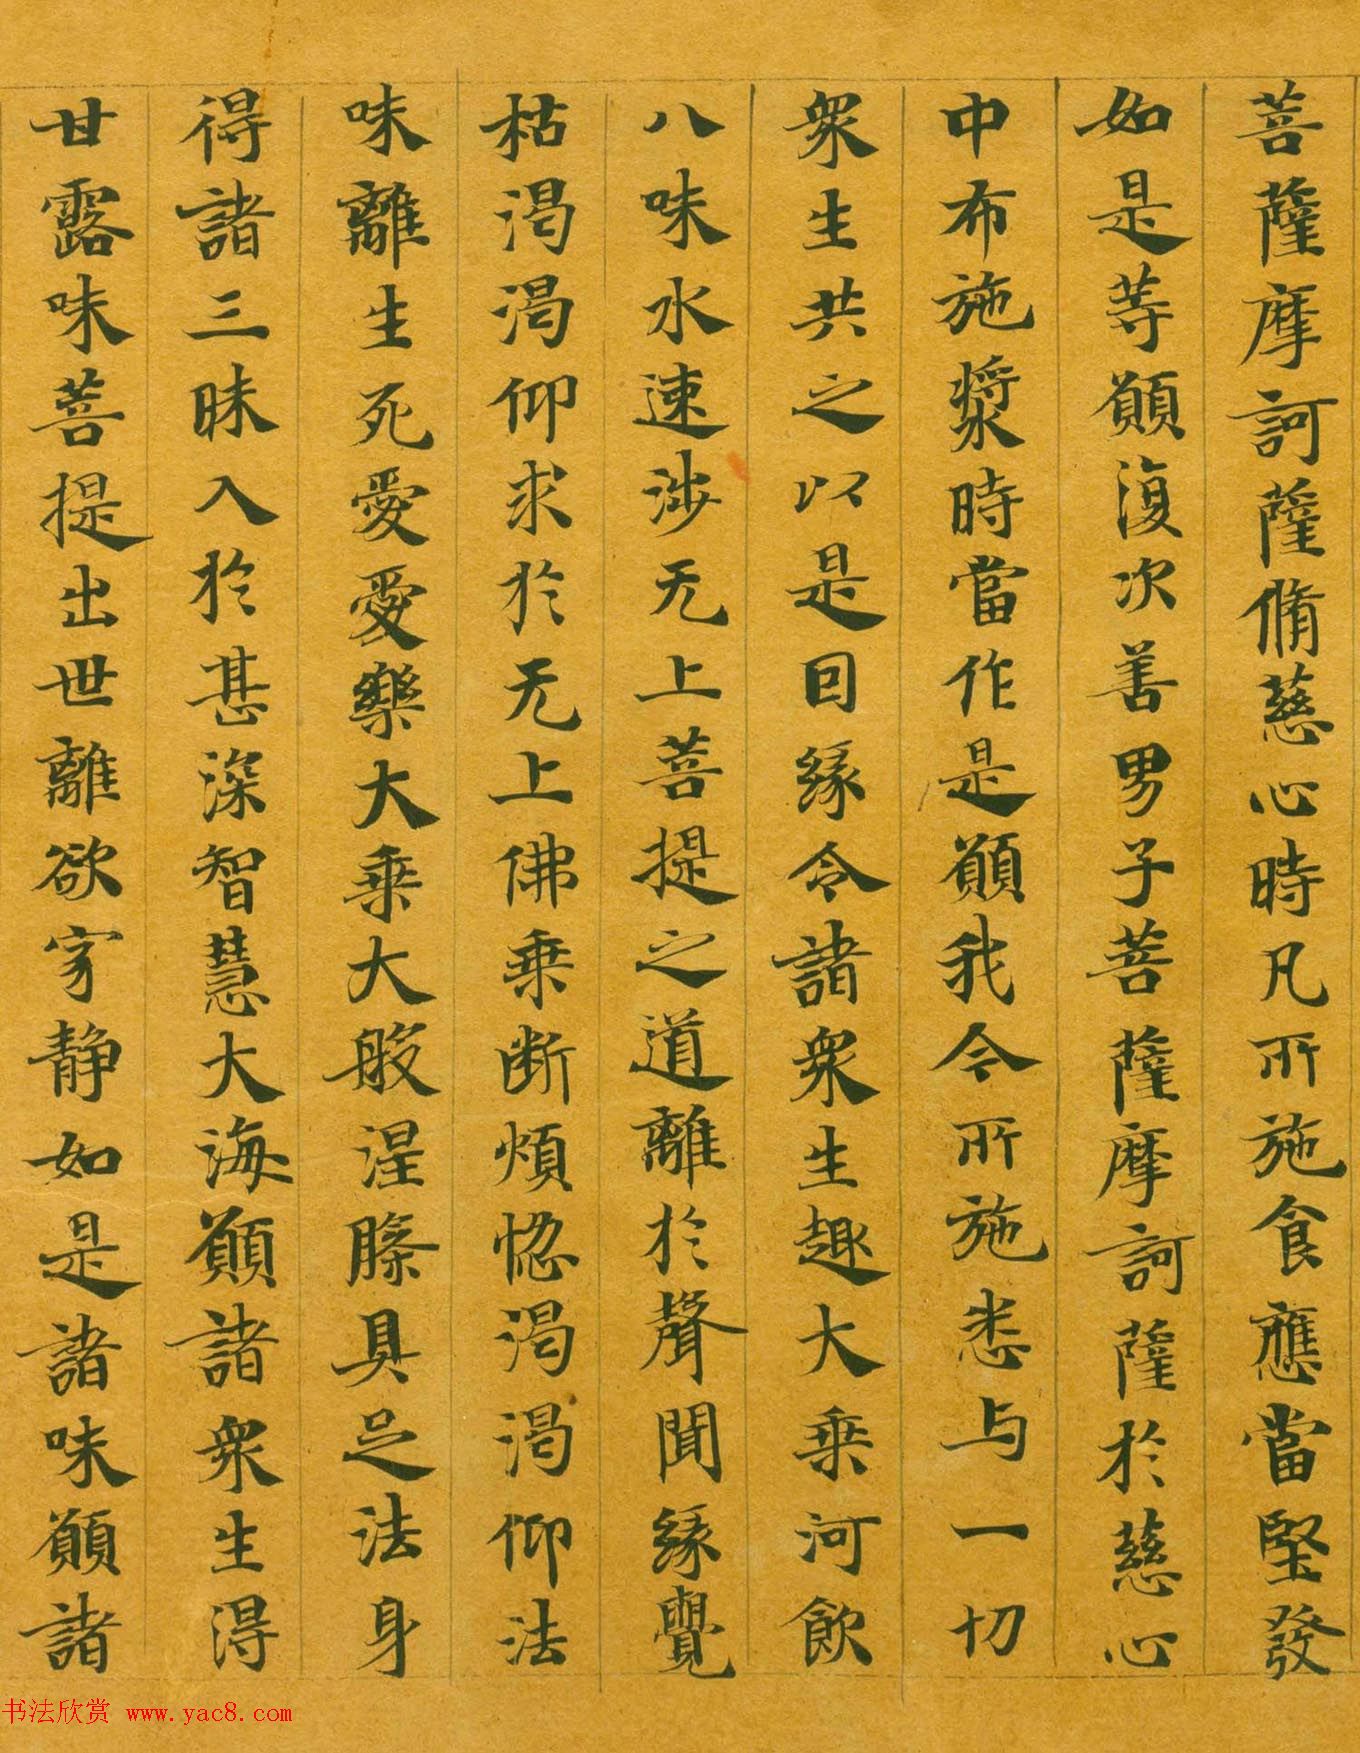 菩薩摩訶薩脩慈心時凡所施食應當堅發
如是等願復次善男子菩薩摩訶薩於慈心
中布施漿時當作是願我今所施悉与一切
衆生共之以是因緣令諸衆生趣大乗河飲
八味水速涉无上菩提之道離於聲聞緣覺
枯渴渴仰求於无上佛乗断煩惚渴渴仰法
味離生死愛愛樂大乗大般涅膝具足法身
得諸三昧入於甚深智慧大海願諸衆生得
甘露味菩提出世離欲家静如是諸味願諸
书法欣赏 www.yac8.com